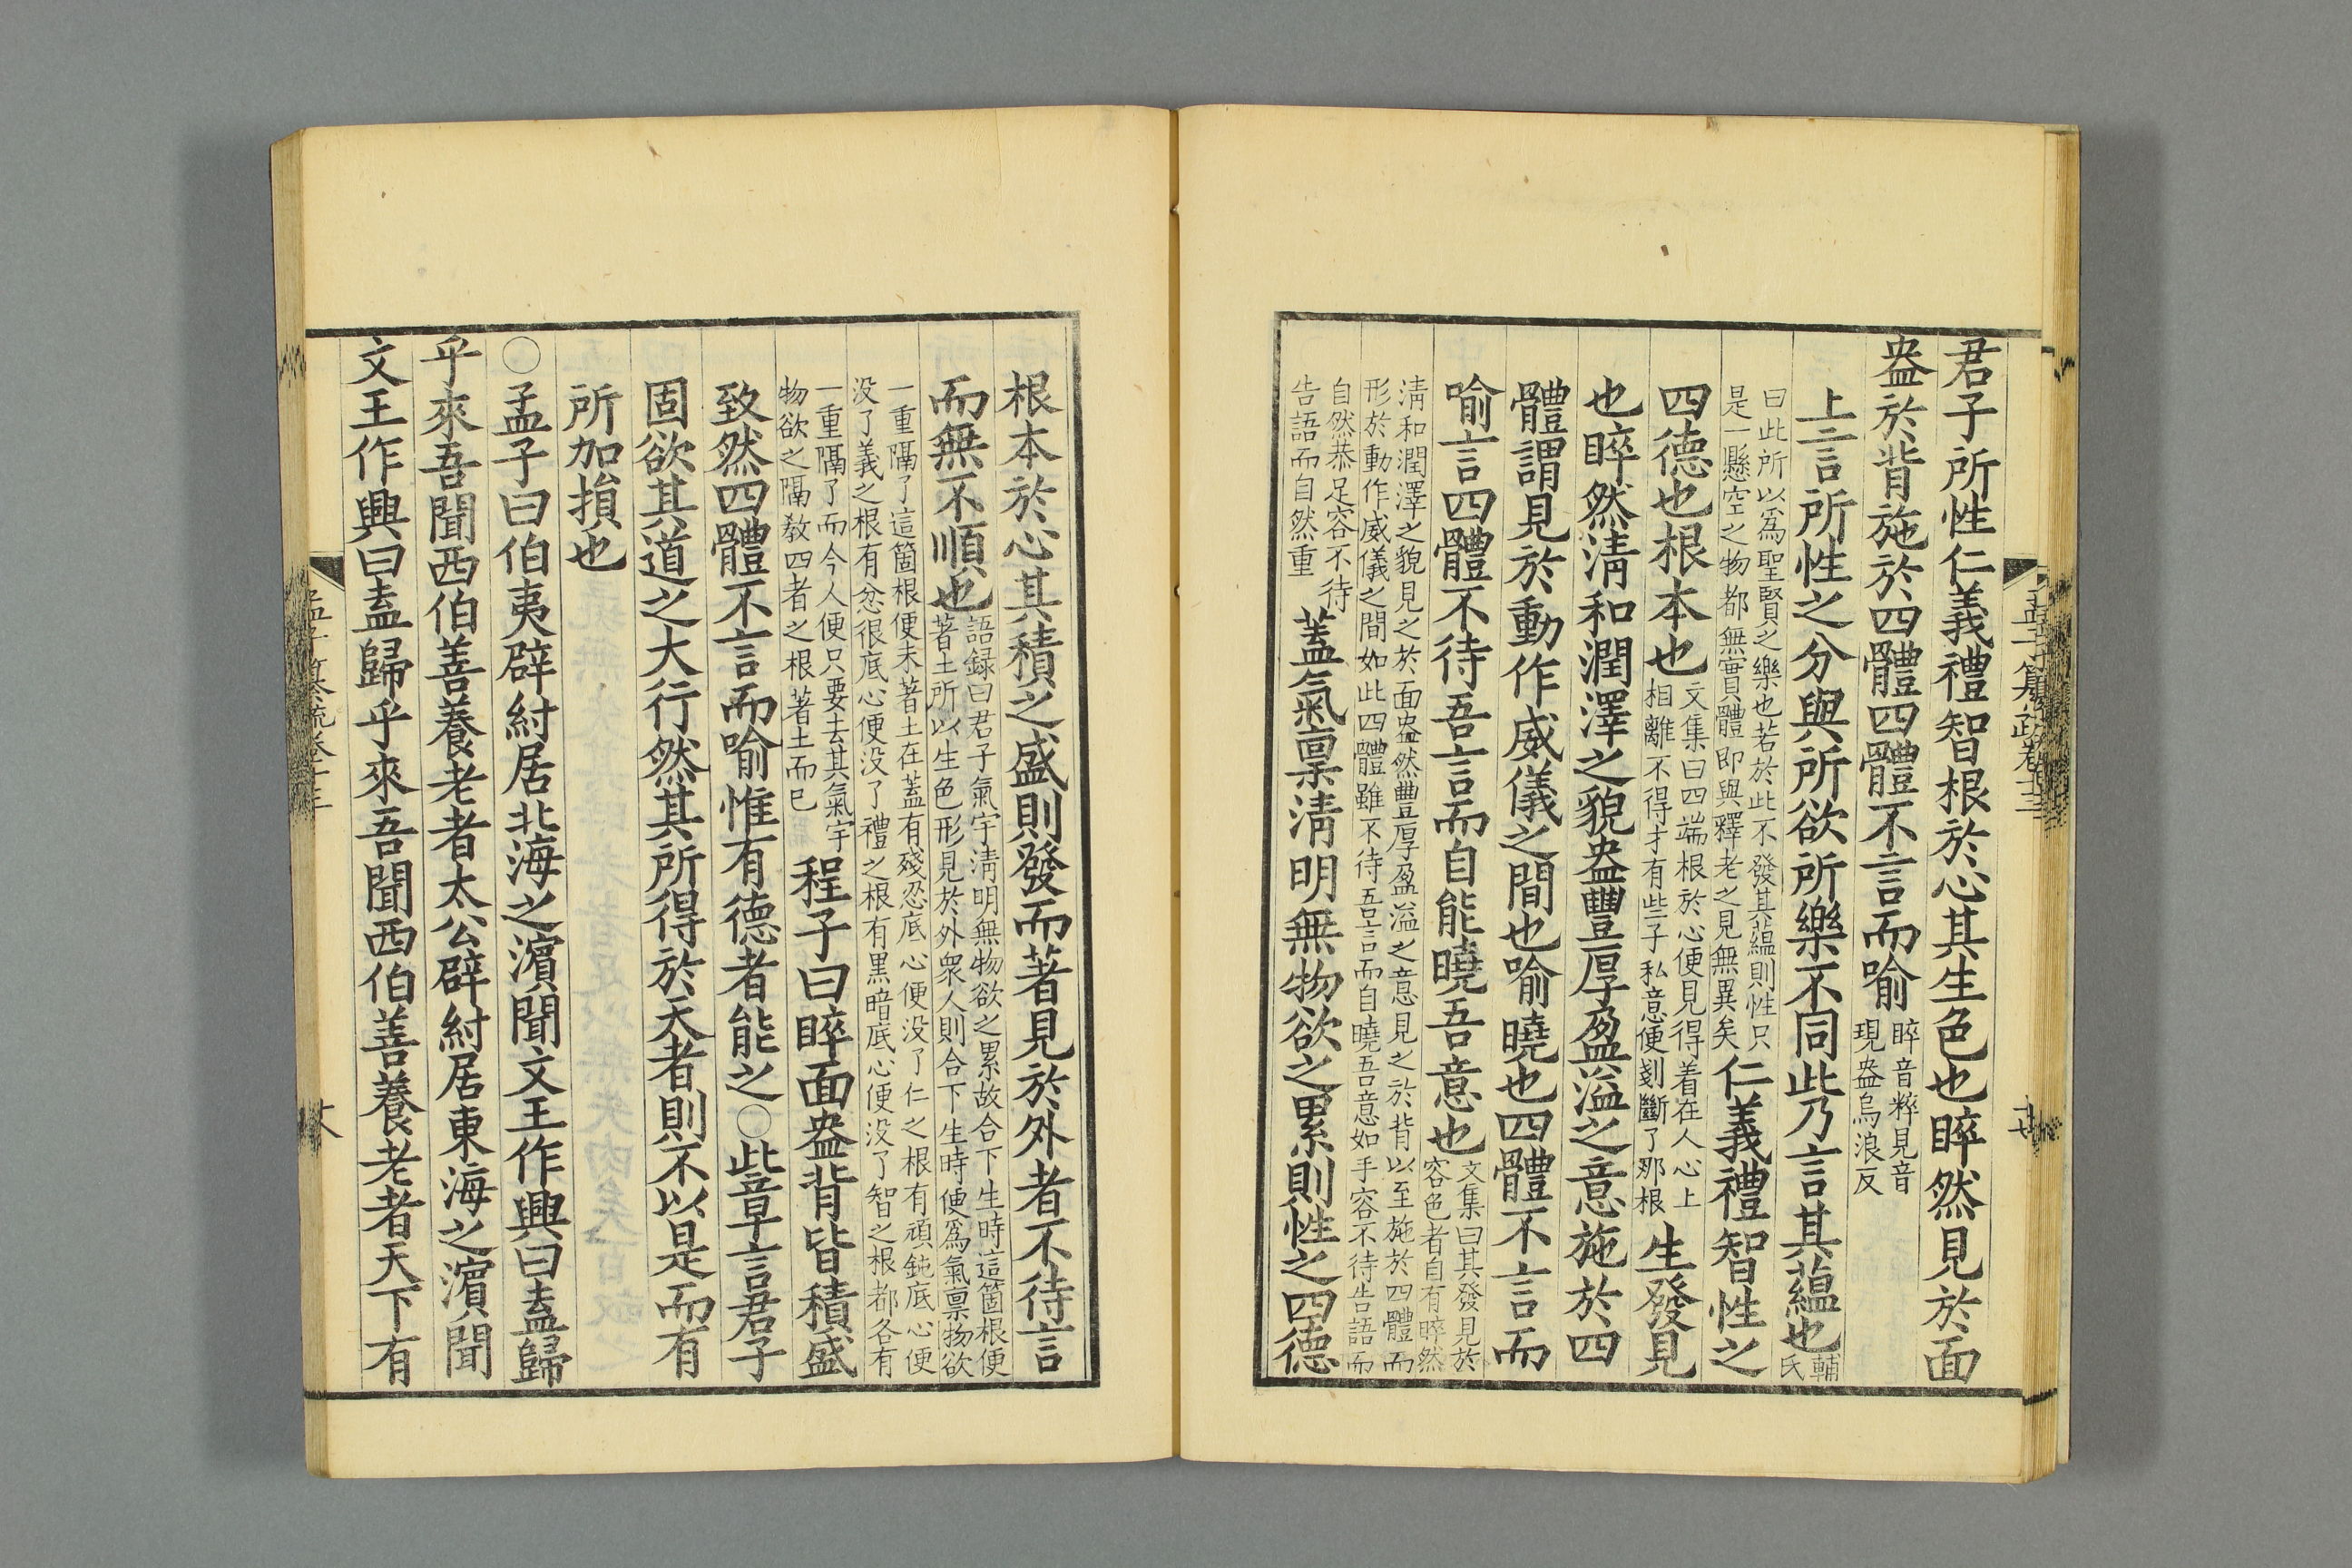 君子所性仁義禮智根於心其生色也睟然見於面
盎於背施於四體四體不言而喻
睟音粹見音
現盎烏浪反
上言所性之分與所欲所樂不同此乃言其蘊也
輔
氏
曰此所以爲聖賢之樂也若於此不發其蘊則性只
是一懸空之物都無實體即與釋老之見無異矣
仁義禮智性之
四德也根本也
文集曰四端根於心便見得着在人心上
相離不得才有些子私意便剗斷了那根
生發見
也睟然清和潤澤之貌盎豐厚盈溢之意施於四
體謂見於動作威儀之間也喻曉也四體不言而
喻言四體不待吾言而自能曉吾意也
文集曰其發見於
容色者自有睟然
清和潤澤之貌見之於面盎然豐厚盈溢之意見之於背以至施於四體而
形於動作威儀之間如此四體雖不待吾言而自曉吾意如手容不待告語而
自然恭足容不待
告語而自然重
蓋氣稟清明無物欲之累則性之四德
根本於心其積之盛則發而著見於外者不待言
而無不順也
語録曰君子氣宇清明無物欲之累故合下生時這箇根便
著土所以生色形見於外衆人則合下生時便爲氣禀物欲
一重隔了這箇根便未著土在蓋有殘忍底心便没了仁之根有頑鈍底心便
没了義之根有忿很底心便没了禮之根有黑暗底心便没了智之根都各有
一重隔了而今人便只要去其氣宇
物欲之隔敎四者之根著土而已
程子曰睟面盎背皆積盛
致然四體不言而喻惟有德者能之○此章言君子
固欲其道之大行然其所得於天者則不以是而有
所加損也
○孟子曰伯夷辟紂居北海之濱聞文王作興曰盍歸
乎來吾聞西伯善養老者太公辟紂居東海之濱聞
文王作興曰盍歸乎來吾聞西伯善養老者天下有